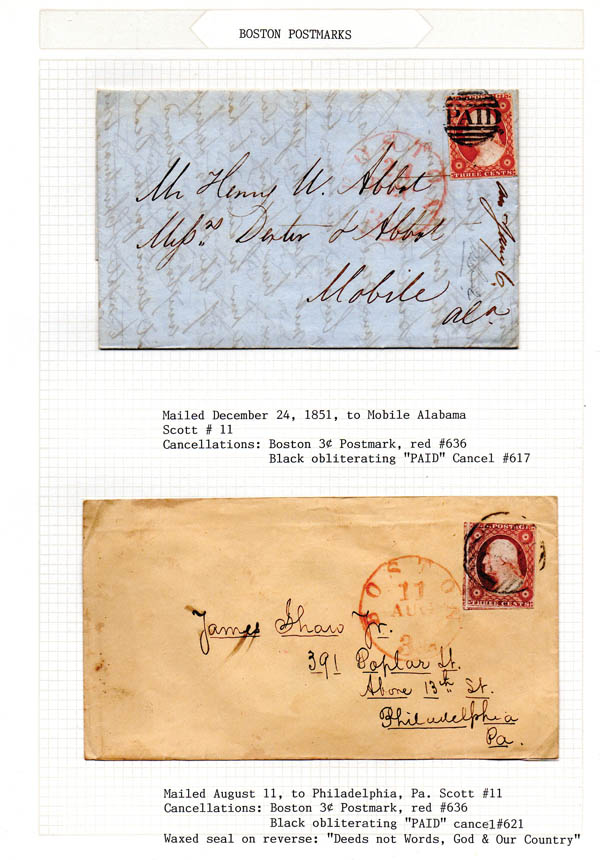 BOSTON POSTMARKS
PAID
THREE CENTS
24
Mr Henry W. Abbot
Messrs Dexter & Abbot
Mobile
Ala
Mailed December 24, 1851, to Mobile Alabama
Scott # 11
Cancellations: Boston 3¢ Postmark, red #636
Black obliterating "PAID" Cancel #617
POSTAGE
THREE CENTS
BOSTON
11
AUG
3
James Shaw Jr.
391 Poplar St.
Above 13th St.
Philadelphia
Pa.
Mailed August 11, to Philadelphia, Pa. Scott #11
Cancellations: Boston 3¢ Postmark, red #636
Black obliterating "PAID" cancel#621
Waxed seal on reverse: "Deeds not Words, God & Our Country"